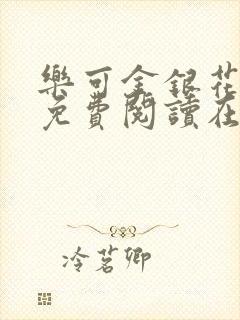 樂可金銀花
免費閱讀在
冷茗卿